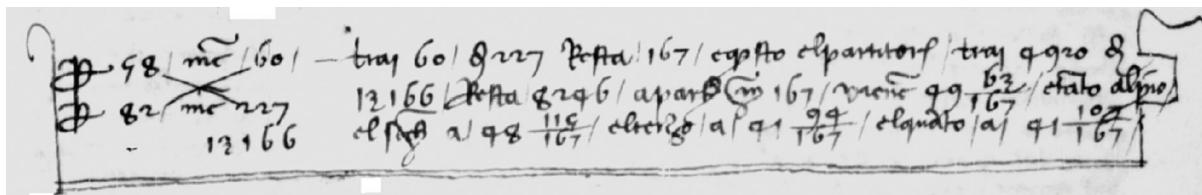 P 58 / mē / 60 / — trai 60 / d 227 Resta / 167 / e q̄sto el partitor / trai 4920 d
P 82 / mē 227 13166 / Resta 8246 / a partᵉ in 167 / vienē 49 63/167 / e tāto al p̄io
13166 el secō a / 48 115/167 / el terzo / a / 41 94/167 / el quarto / a / 41 104/167